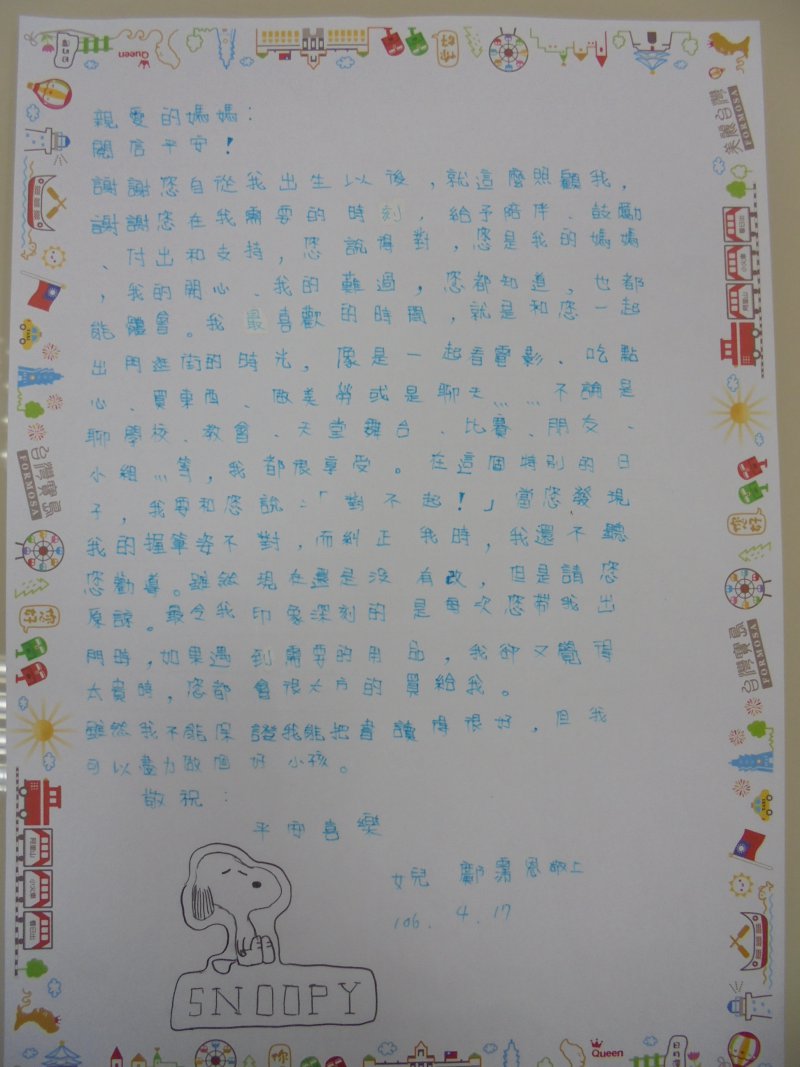 親愛的媽媽：
開信平安！
謝謝您自從我出生以後，就這麼照顧我，
謝謝您在我需要的時刻，給予陪伴、鼓勵
、付出和支持，您說得對，您是我的媽媽
，我的開心、我的難過，您都知道，也都
能體會。我最喜歡的時間，就是和您一起
出門逛街的時光，像是一起看電影、吃點
心、買東西、做美勞或是聊天……不論是
聊學校、教會、天堂舞台、比賽、朋友、
小組…等，我都很享受。在這個特別的日
子，我要和您說：「對不起！」當您發現
我的握筆姿不對，而糾正我時，我還不聽
您勸導。雖然現在還是沒有改，但是請您
原諒。最令我印象深刻的是每次您帶我出
門時，如果遇到需要的用品，我卻又覺得
太貴時，您都會很大方的買給我。
雖然我不能保證我能把書讀得很好，但我
可以盡力做個好小孩。
敬祝：
平安喜樂
女兒 鄭 恩敬上
106. 4. 17
SNOOPY
Queen
你好
美麗台灣
FORMOSA
台灣寶島
FORMOSA
你好
你好
台灣寶島
FORMOSA
阿里山
小火車
看日出
阿里山
小火車
看日出
TAXI
Queen